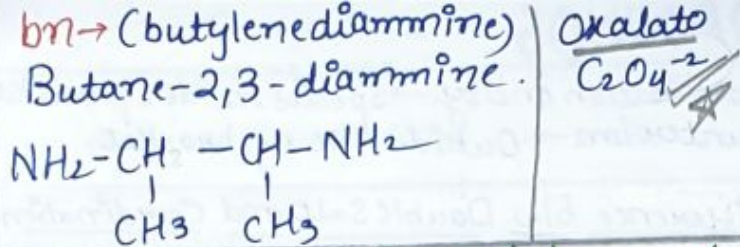 bn→ (butylenediammine)
Butane-2,3-diammine.
NH2-CH - CH-NH2
CH3 CH3
Oxalato
C2O4^-2